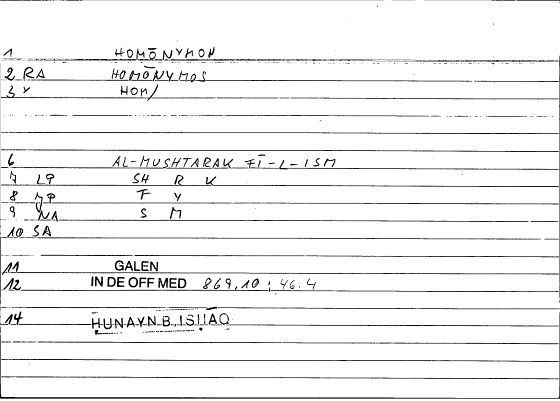 1 HOMŌNYMON
2 RA HOMŌNYMOS
3 Y HOM/
6 AL-MUSHTARAK FĪ-L-ISM
7 LP SH R K
8 JP F Y
9 NA S M
10 SA
11 GALEN
12 IN DE OFF MED 869,10 ; 46.4
14 HUNAYN B. ISḤĀQ